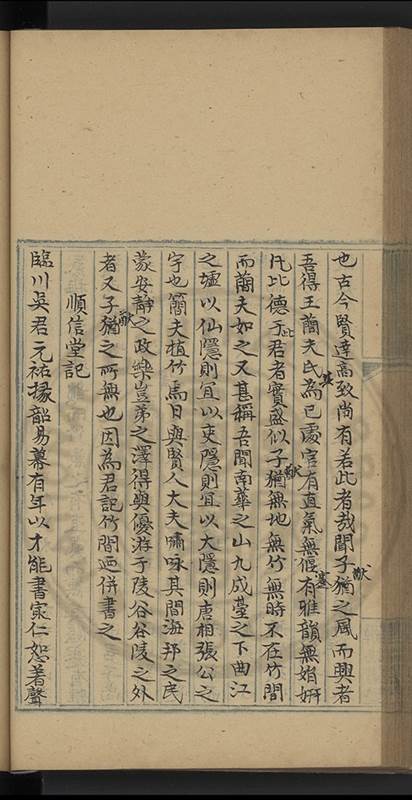 也古今賢達高致尚有若此者哉聞子猶之風而興者
吾得王蕳夫氏為其處官有直氣無偃蹇有雅韻無婧妍
凡比德于此君者實盛似子猷無地無竹無時不在竹間
而蕳夫如之又甚稱吾聞南華之山九成臺之下曲江
之墟以仙隱則宜以吏隱則宜以大隱則唐相張公之
宇也籣夫植竹焉日與賢人大夫嘯咏其間海邦之民
蒙安靜之政樂豈弟之澤得與優游于陵谷谷陵之外
者又子猷之所無也因為君記竹間迺併書之
順信堂記
臨川吳君元祐掾韶易幕有年以才能書最仁恕著聲